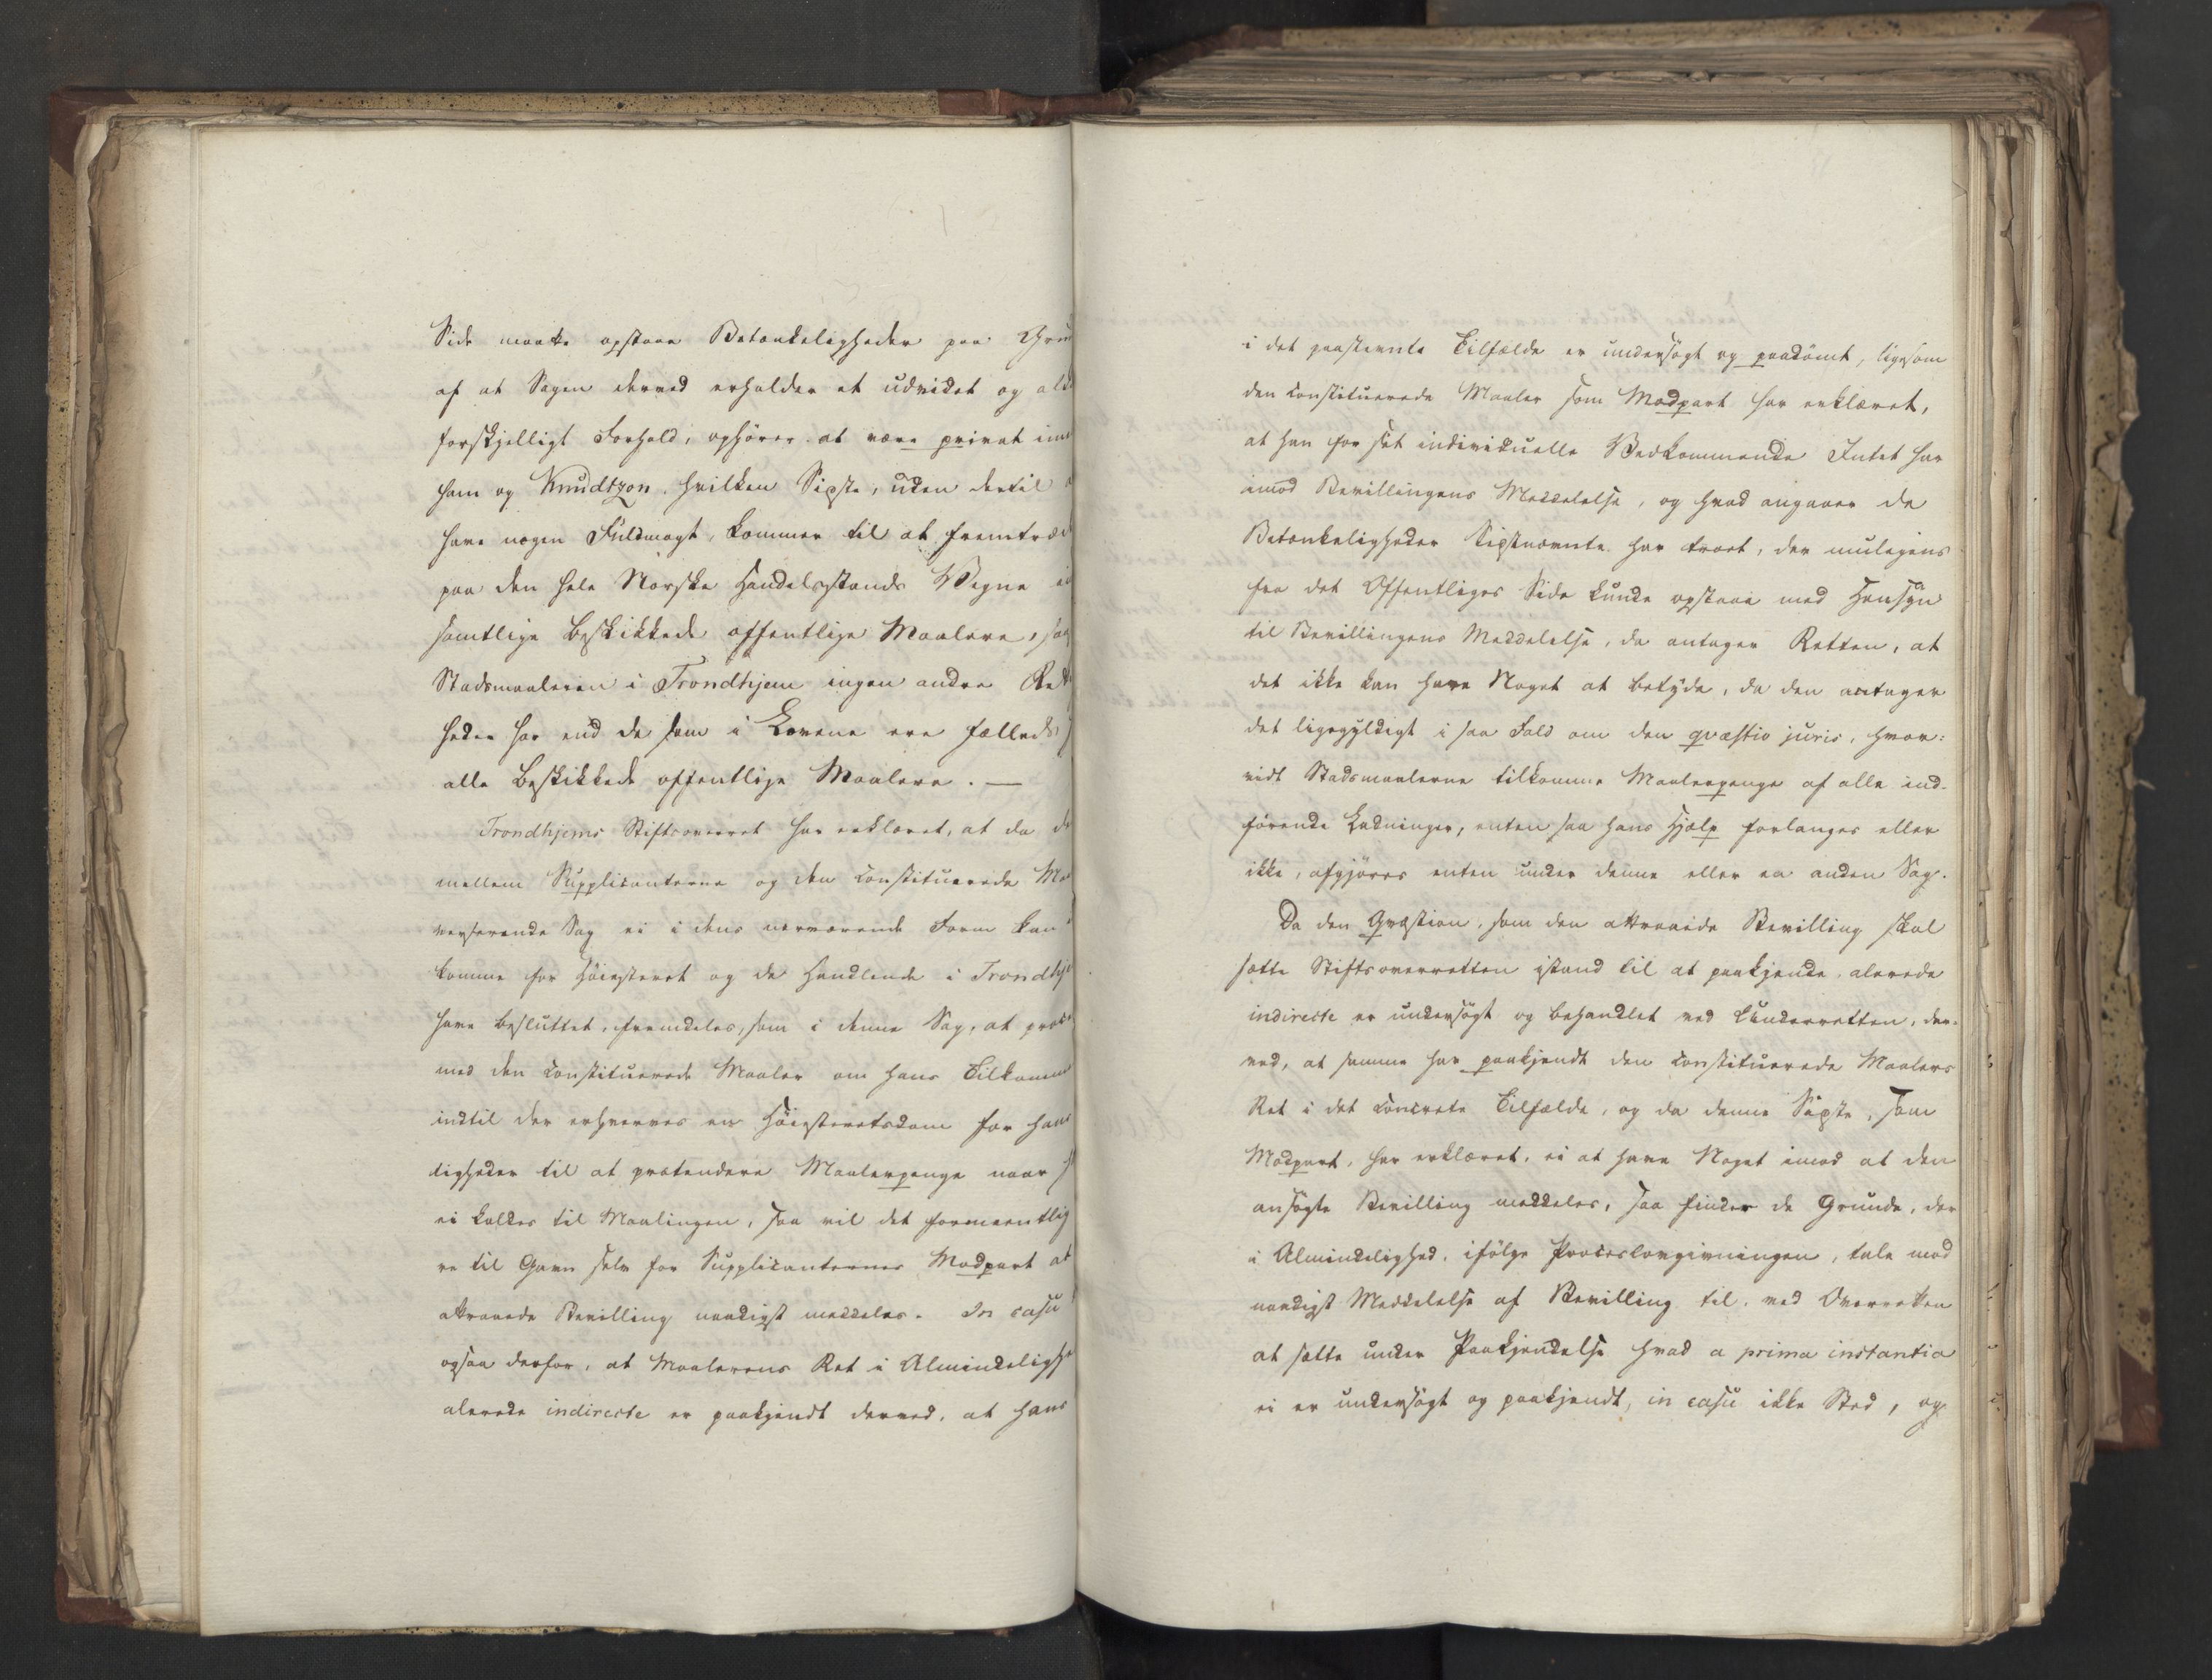 Side maatte opstaae Betænkeligheder paa Grun
af at Sagen derved erholder et udvidet og alde
forskjelligt Forhold, ophører at være privat im
ham og Knudtzon, hvilken Sidste, uden dertil a
have nogen Fuldmagt, kommer til at fremtræd
paa den hele Norske Handelsstands Vegne i
samtlige beskikkede offentlige Maalere, saa
Stadsmaaleren i Trondhjem ingen andre Ret
heder har end de som i Lovene ere fælleds
alle beskikkede offentlige Maalere. —
Trondhjems Stiftsoverret har erklæret, at da d
mellem Supplicanterne og den constituerede Ma
verserende Sag ei i dens nærværende Form kan
komme for Høiesteret og de Handlende i Trondhje
have besluttet, fremdeles, som i denne Sag, at proce
med den constituerede Maaler om hans Tilkomme
indtil der erhverves en Høiesteretsdom for hans
tigheder til at prætendere Maalerpenge naar h
ei kaldes til Maalingen, saa vil det formeentlig
re til Gavn selv for Supplicanternes Modpart at
attraaede Bevilling naadigst meddeles. In casu
ogsaa derfor, at Maalerens Ret i Almindelighe
alerede indirecte er paakjendt derved, at hans
i det paastevnte Tilfælde er undersøgt og paadømt, ligesom
den constituerede Maaler som Modpart har erklæret,
at han for sit individuelle Vedkommende Intet har
imod Bevillingens Meddelelse, og hvad angaaer de
Betænkeligheder Sidstnævnte har troet, der muligens
fra det Offentliges Side kunde opstaae med Hensyn
til Bevillingens Meddelelse, da antager Retten, at
det ikke kan have Noget at betyde, da den antager
det ligegyldigt i saa Fald om den qvæstio juris, hvor-
vidt Stadsmaalerne tilkomme Maalerpenge af alle ind-
førende Ladninger, enten saa hans Hjælp forlanges eller
ikke, afgjøres enten under denne eller en anden Sag.
Da den Qvæstion, som den attraaede Bevilling skal
sætte Stiftsoverretten istand til at paakjende, alerede
indirecte er undersøgt og behandlet ved Underretten, der-
ved, at samme har paakjendt den constituerede Maalers
Ret i det concrete Tilfælde, og da denne Sidste, som
Modpart, har erklæret, ei at have Noget imod at den
ansøgte Bevilling meddeles, saa finder de Grunde, der
i Almindelighed, ifølge Proceslovgivningen, tale mod
naadigst Meddelelse af Bevilling til, ved Overretten
at sætte under Paakjendelse hvad a prima instantia
ei er undersøgt og paakjendt, in casu ikke Sted, og